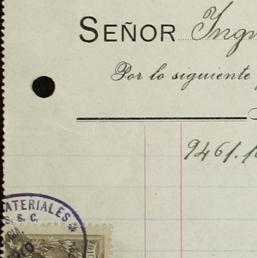 SEÑOR Ingu
Por lo siguiente
9461.1
ATERIALES *
S. S. C.